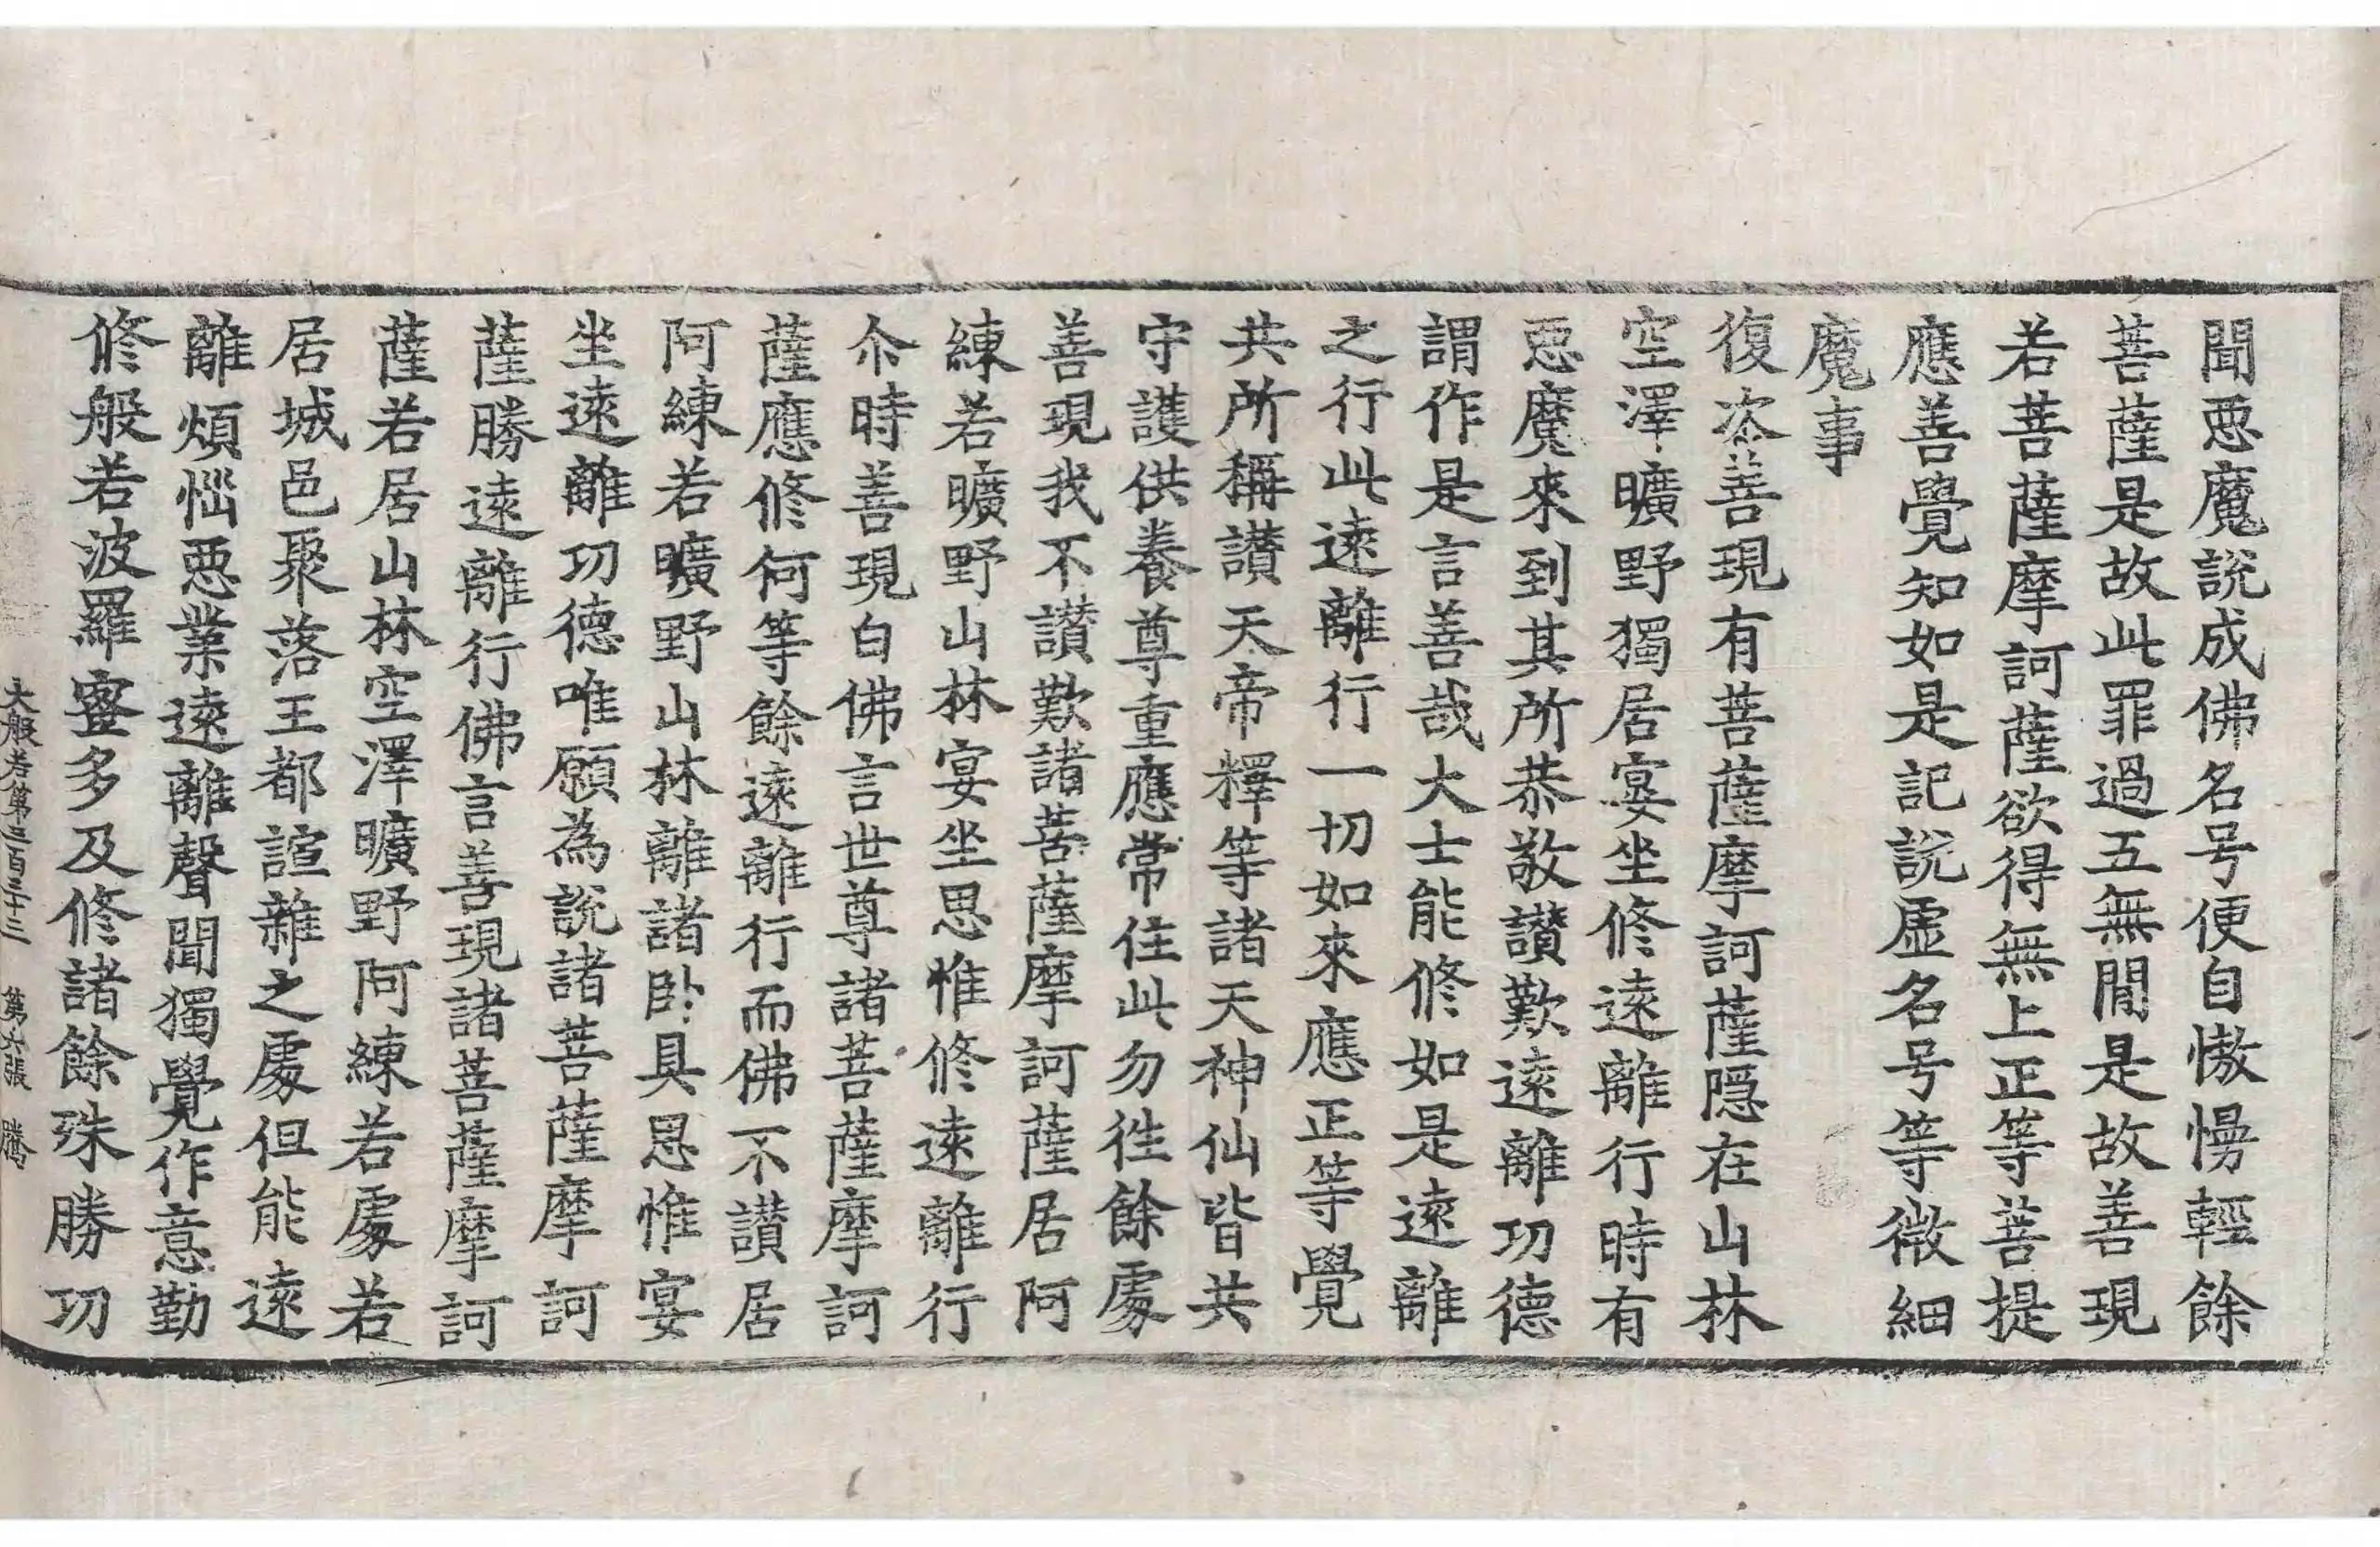 聞惡魔說成佛名号便自慠慢輕餘
菩薩是故此罪過五無間是故善現
若菩薩摩訶薩欲得無上正等菩提
應善覺知如是記說虛名号等微細
魔事
復次善現有菩薩摩訶薩隱在山林
空澤曠野獨居宴坐修遠離行時有
惡魔來到其所恭敬讃歎遠離功德
謂作是言善哉大士能修如是遠離
之行此遠離行一切如來應正等覺
共所稱讃天帝釋等諸天神仙皆共
守護供養尊重應常住此勿徃餘處
善現我不讃歎諸菩薩摩訶薩居阿
練若曠野山林宴坐思惟修遠離行
尒時善現白佛言世尊諸菩薩摩訶
薩應修何等餘遠離行而佛不讃居
阿練若曠野山林離諸卧具思惟宴
坐遠離功德唯願為說諸菩薩摩訶
薩勝遠離行佛言善現諸菩薩摩訶
薩若居山林空澤曠野阿練若處若
居城邑聚落王都諠雜之處但能遠
離煩惱惡業遠離聲聞獨覺作意勤
修般若波羅蜜多及修諸餘殊勝功
大般若第三百三十三　第六張　騰